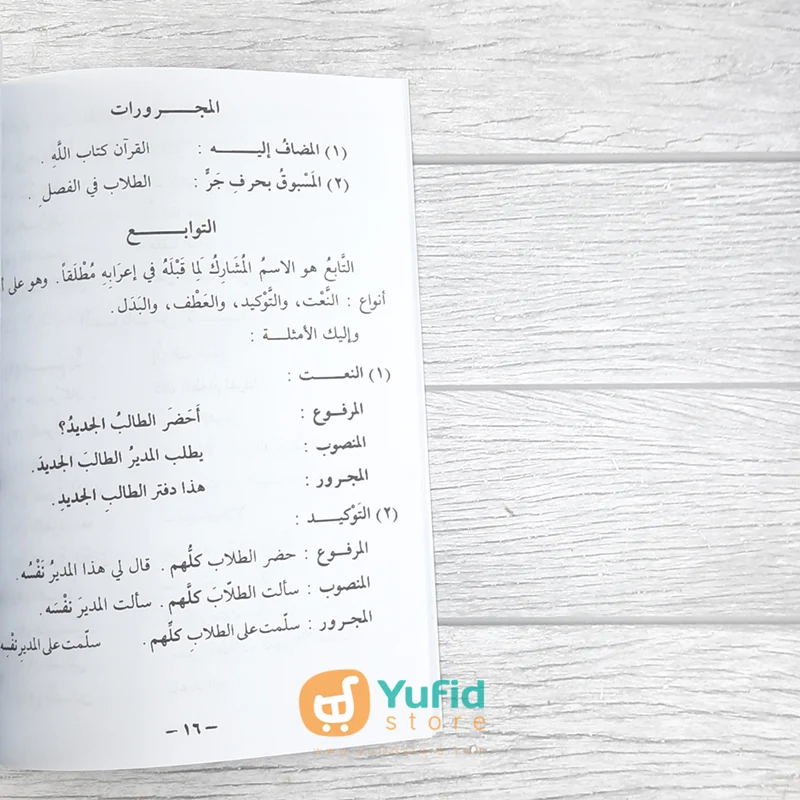 المجـــرورات
(١) المضافُ إليـــه : القرآن كتاب اللَّهِ .
(٢) المَسْبوقُ بحرفِ جَرٍّ : الطلاب في الفصلِ .
التوابـــع
التَّابعُ هو الاسمُ المُشَارِكُ لِما قَبْلَهُ في إعرَابِهِ مُطْلَقاً. وهو على
أنواع : النَّعْت، والتَّوْكيد، والعَطْف، والبَدَل.
وإليك الأمثلـــة :
(١) النعـــت :
المرفـوع : أَحَضرَ الطالبُ الجديدُ؟
المنصوب : يطلب المديرُ الطالبَ الجديدَ.
المجـرور : هذا دفتر الطالبِ الجديدِ.
(٢) التَوْكيـــد :
المرفـوع : حضر الطلاب كلُّهم . قال لي هذا المديرُ نَفْسُه.
المنصوب : سألت الطلّابَ كلَّهم . سألت المديرَ نفْسَه.
المجـرور : سلّمت على الطلابِ كلِّهم. سلّمت على المديرِ
– ١٦ –
Yufid
store